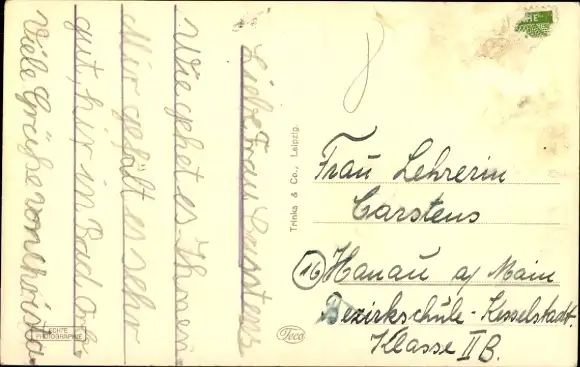 Liebe Frau Carstens
Wie gehet es Ihnen
Mir gefält es sehr
gut, hir in Bad Orb.
Viele Grüße von Christa.
ECHTE
PHOTOGRAPHIE
Trinks & Co., Leipzig.
Teco
Frau Lehrerin
Carstens
16 Hanau a/ Main
Bezirkschule - Kesselstadt.
Klasse II B.